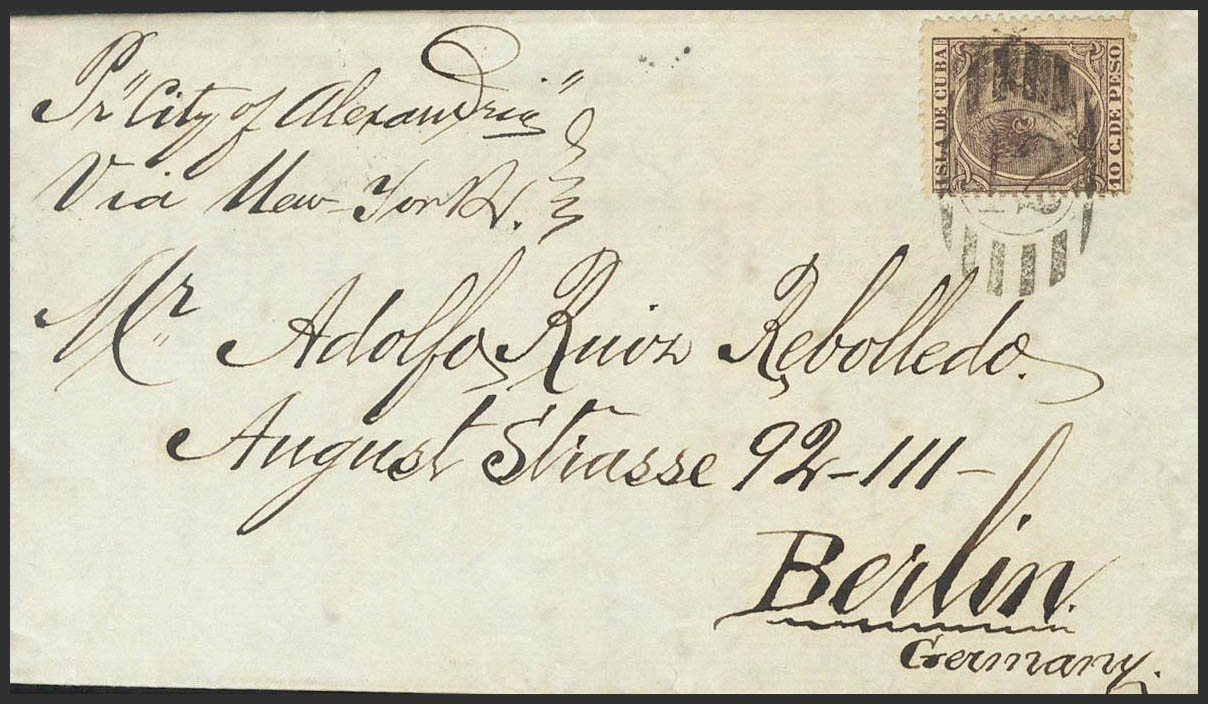 Pr "City of Alexandria"
Via New-York.
ISLA DE CUBA
10 C. DE PESO
Mr Adolfo Ruiz Rebolledo.
August Strasse 92-111-
Berlin.
Germany.